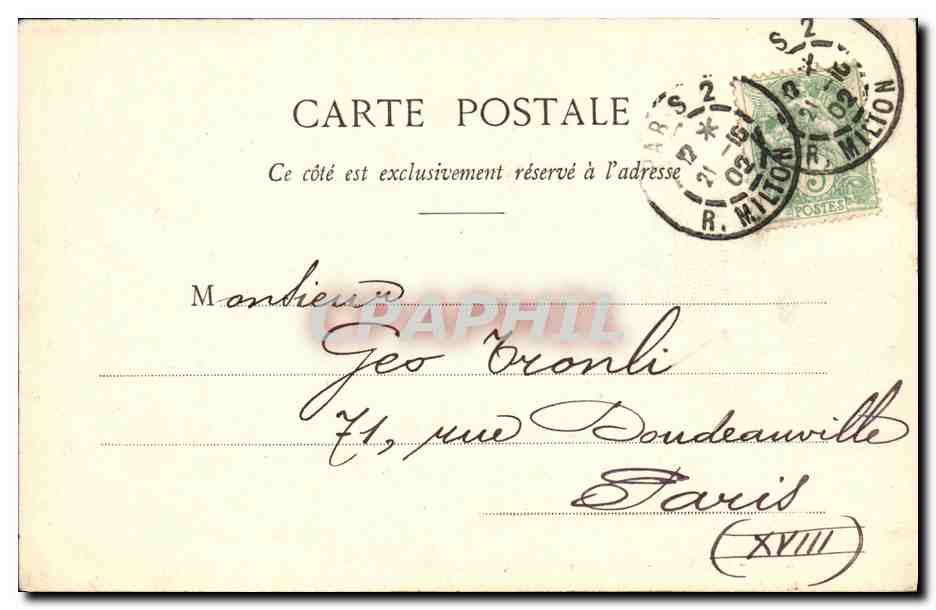 CARTE POSTALE
Ce côté est exclusivement réservé à l'adresse
PARIS 2
12 * 15
21 -5
02
R. MILTON
S 2
21
02
R. MILTON
5
POSTES
Monsieur
CPAPHIL
Geo Tronli
71, rue Doudeauville
Paris
(XVIII)